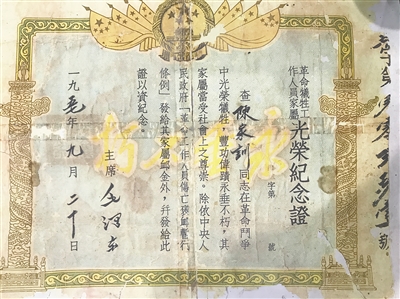 革命犧牲工
作人員家屬
光榮紀念證
字第 號
查陳訓同志在革命鬥爭
中光榮犧牲,豐功偉蹟永垂不朽,其
家屬當受社會上之尊崇。除依中央人
民政府「革命工作人員傷亡撫卹暫行
條例」發給其家屬卹金外,幷發給此
證以資紀念。
主席 毛澤東
一九五年九月二十日